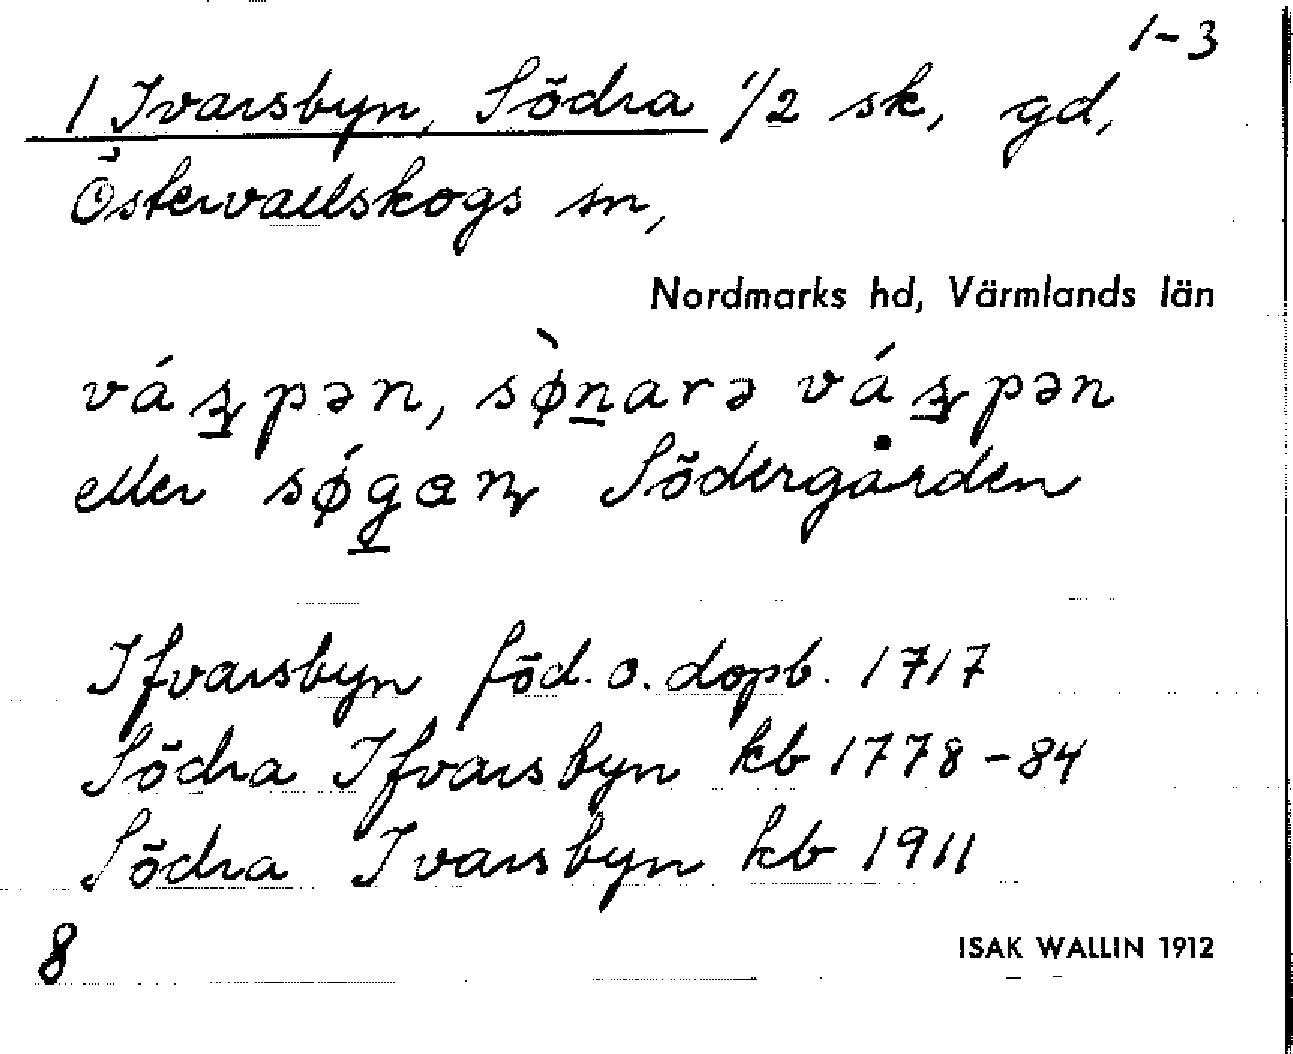 1-3
1 Ivarsbyn, Södra 1/2 sk, gd,
Östervallskogs sn,
Nordmarks hd, Värmlands län
eller Södergården
Ifvarsbyn föd. o. dopb. 1717
Södra Ifvarsbyn kb 1778-84
Södra Ivarsbyn kb 1911
8
ISAK WALLIN 1912